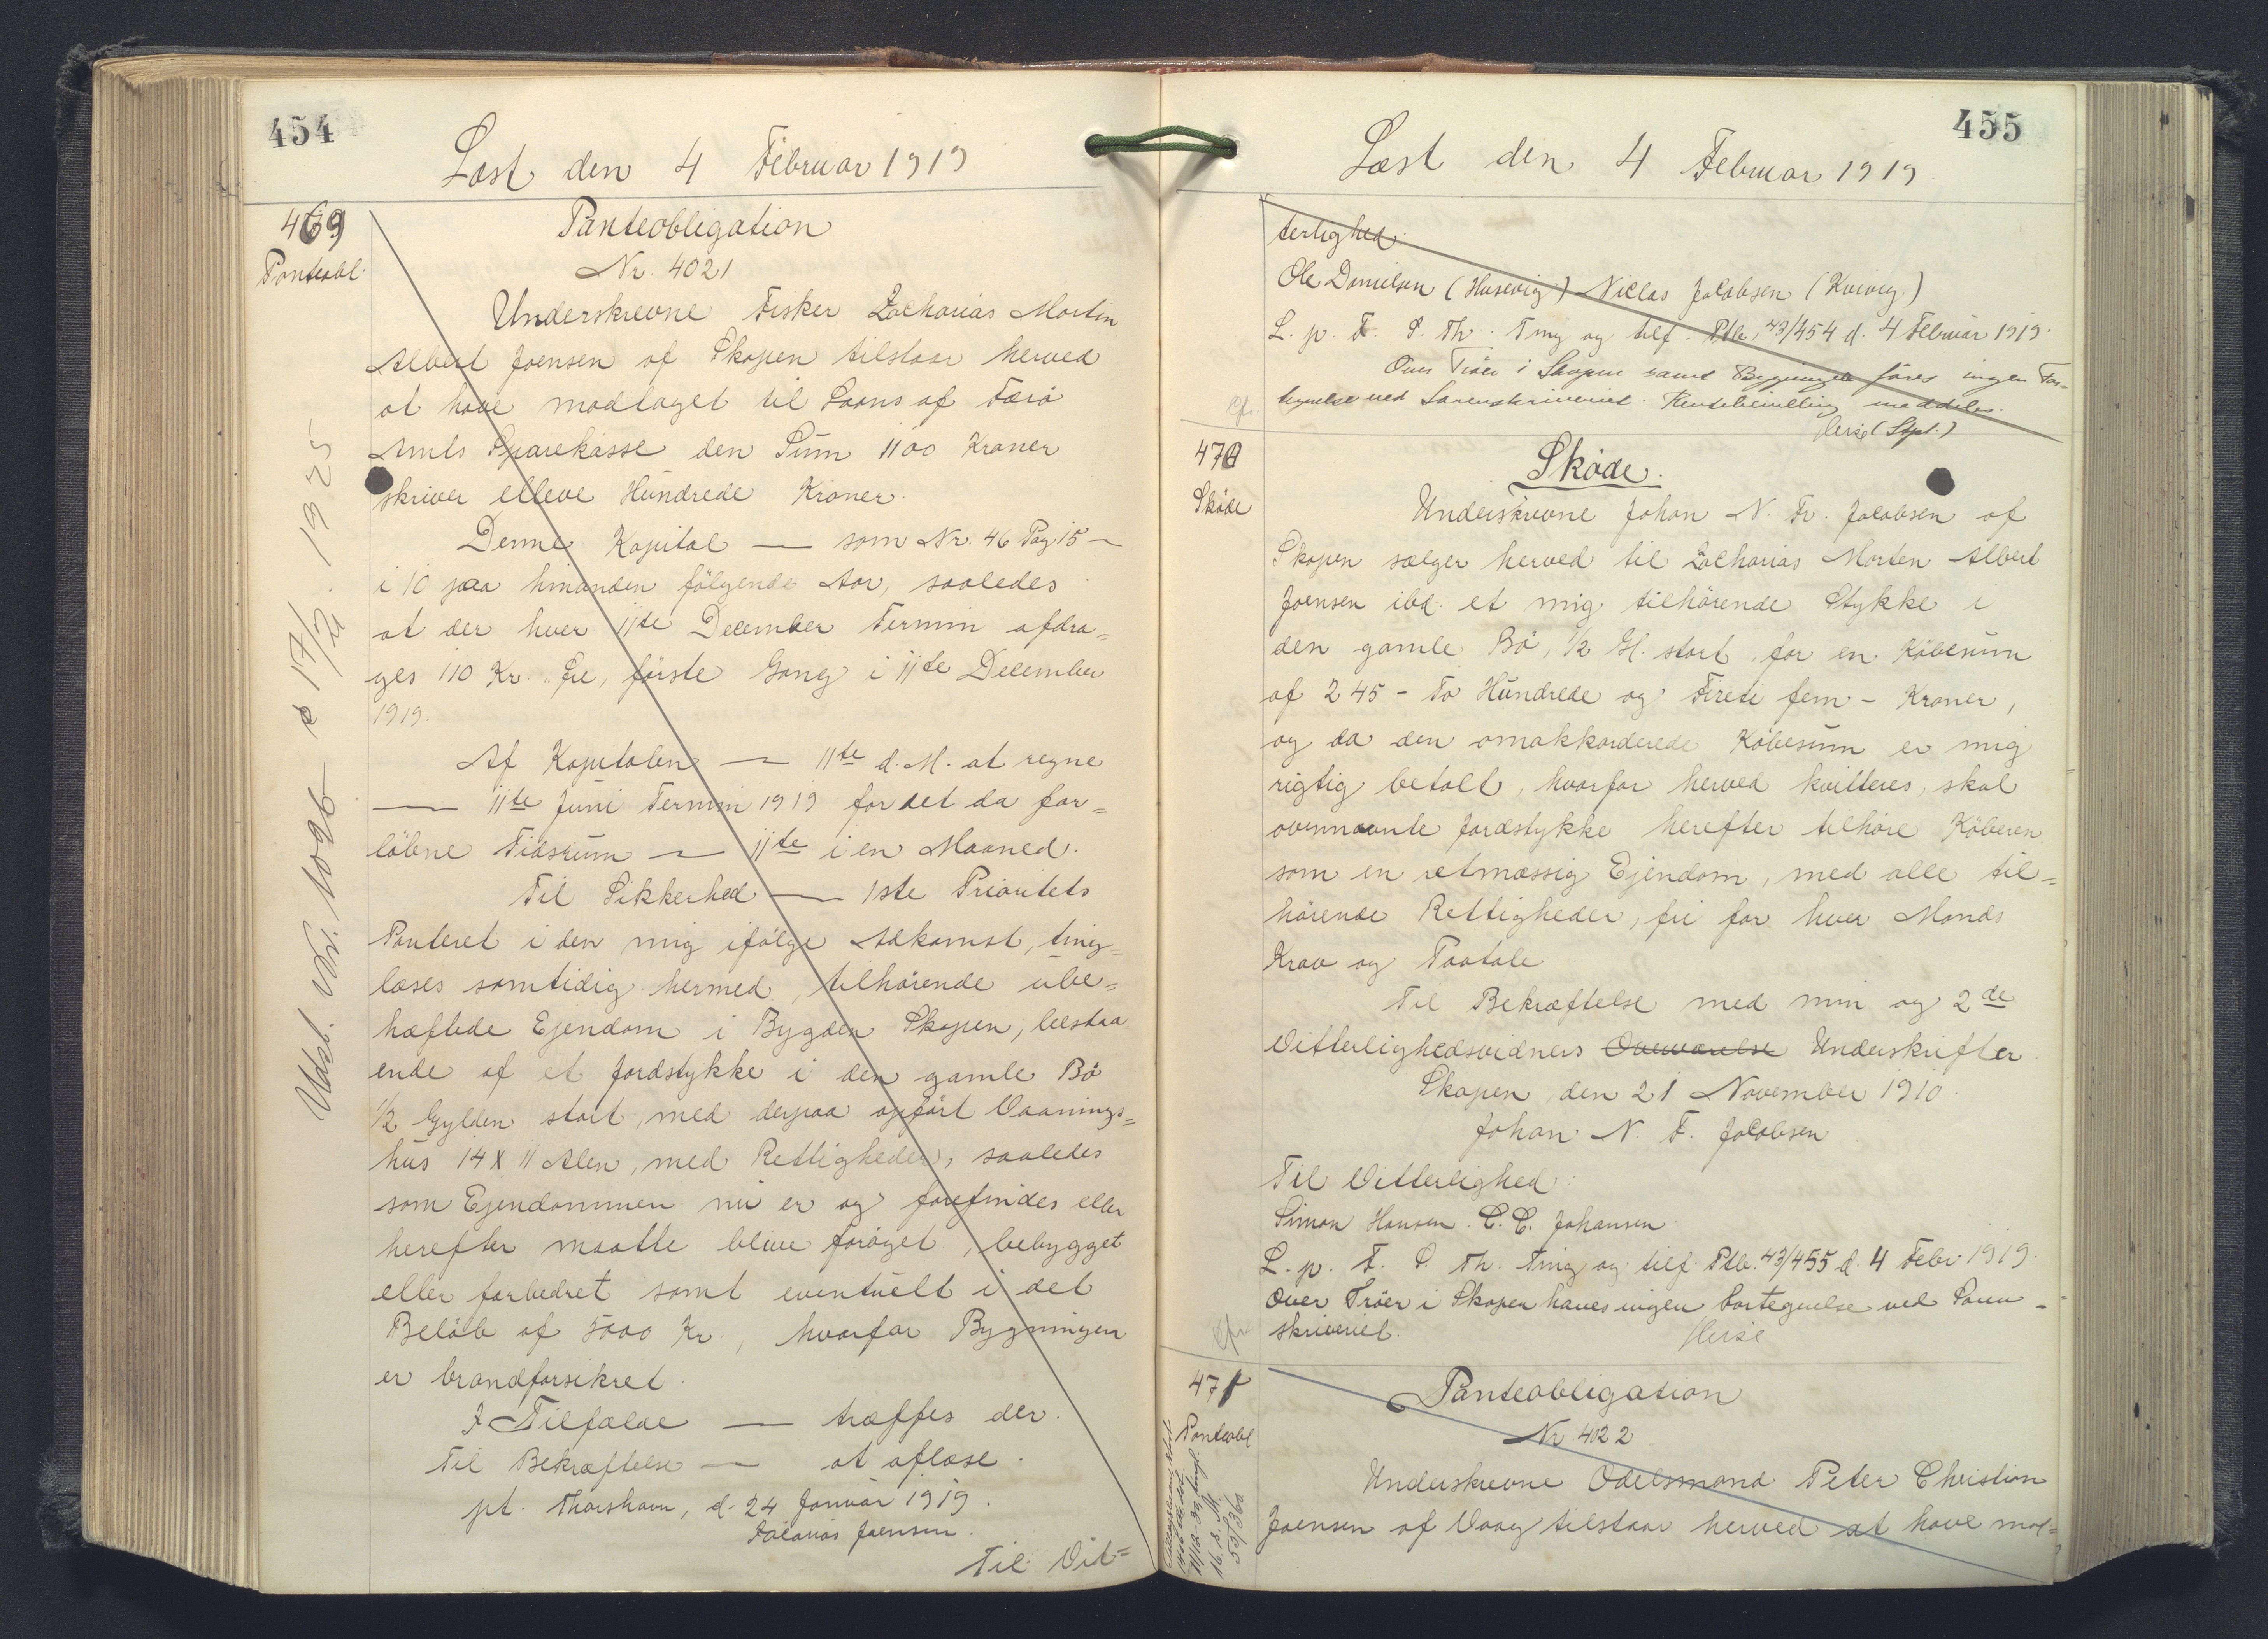 454
Læst den 4 Februar 1919
469
Panteobl.
Panteobligation
Nr. 4021
Underskrevne Fisker Zacharias Morten
Albert Joensen af Skopen tilstaar herved
at have modtaget til Laans af Færø
Amts Sparekasse den Sum 1100 Kroner
skriver elleve Hundrede Kroner.
Denne Kapital — som Nr. 46 Pag 15 —
i 10 paa hinanden følgende Aar, saaledes
at der hver 11te December Termin afdra=
ges 110 Kr. " Øre, første Gang i 11te December
1919.
Af Kapitalen — 11te d. M. at regne
— 11te Juni Termin 1919 for det da for=
løbne Tidsrum — 11te i en Maaned.
Til Sikkerhed — 1ste Prioritets
Panteret i den mig ifølge Adkomst, ting=
læses samtidig hermed, tilhørende ube=
hæftede Ejendom i Bygden Skopen, bestaa
ende af et Jordstykke i den gamle Bø
1/2 Gylden stort, med derpaa opført Vaanings=
hus 14 x 11 Alen, med Rettigheder, saaledes
som Ejendommen nu er og forefindes eller
herefter maatte blive forøget, bebygget
eller forbedret samt eventuelt i det
Beløb af 5000 Kr., hvorfor Bygningen
er brandforsikret.
I Tilfælde — træffes der.
Til Bekræftelse — at aflæse.
pt. Thorshavn, d. 24 Januar 1919.
Zakarias Joensen.
Til Vit=
Udsl. Nr. 1026 17/2 1925
455
Læst den 4 Februar 1919
terlighed:
Ole Danielsen (Husevig) Niclas Jacobsen (Kvivig)
L. p. F. S. Th. Ting og tilf. Ptb. 43/454 d. 4 Februar 1919.
Over Tröer i Skopen samt Bygninger føres ingen For=
cfr. tegnelse ved Sorenskriveriet. Rentebevilling meddeles.
Herse (Stpl.)
470
Skøde
Skøde.
Underskrevne Johan N. Fr. Jacobsen af
Skopen sælger herved til Zacharias Morten Albert
Joensen ibd. et mig tilhørende Stykke i
den gamle Bø, 1/2 Gl. stort, for en Købesum
af 245 - To Hundrede og Fireti fem - Kroner,
og da den omakkorderede Købesum er mig
rigtig betalt, hvorfor herved kvitteres, skal
ovennævnte Jordstykke herefter tilhøre Køberen
som en retmæssig Ejendom, med alle til=
hørende Rettigheder, fri for hver Mands
Krav og Paatale
Til Bekræftelse med min og 2de
Vitterlighedsvidners Overværelse Underskrifter.
Skopen, den 21 November 1910.
Johan N. F. Jacobsen
Til Vitterlighed:
Simon Hansen. C. C. Johansen
L. p. F. S. Th. Ting og tilf. Ptb. 43/455 d. 4 Febr 1919.
Over Tröer i Skopen haves ingen Fortegnelse ved Soren=
cfr. skriveriet.
Herse
471
Panteobl
Panteobligation
Nr 4022
Underskrevne Odelsmand Peter Christian
Joensen af Vaag tilstaar herved at have mod=